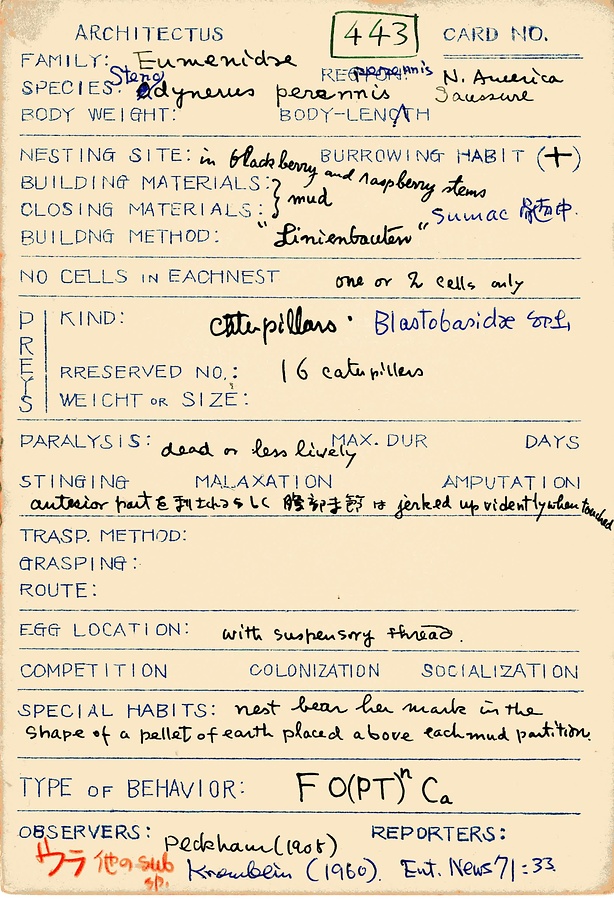 ARCHITECTUS 443 CARD NO.
FAMILY: Eumenidae REGION: N. America
SPECIES: Steno Odynerus perennis perennis Saussure
BODY WEIGHT: BODY-LENGTH
NESTING SITE: in blackberry and raspberry stems BURROWING HABIT (+)
BUILDING MATERIALS: } mud
CLOSING MATERIALS: Sumac 髄中.
BUILDNG METHOD: "Linienbauten"
NO CELLS IN EACHNEST one or 2 cells only
PREYS
KIND: caterpillars. Blastobasidae
RRESERVED NO.: 16 caterpillers
WEICHT OR SIZE:
PARALYSIS: dead or less lively MAX. DUR DAYS
STINGING MALAXATION AMPUTATION
anterior part を刺すらしく 腹部末節 は jerked up vidently when touched
TRASP. METHOD:
GRASPING:
ROUTE:
EGG LOCATION: with suspensory thread.
COMPETITION COLONIZATION SOCIALIZATION
SPECIAL HABITS: nest bear her mark in the
shape of a pellet of earth placed above each mud partition.
TYPE OF BEHAVIOR: F O(PT)ⁿ Ca
OBSERVERS: Peckham (1905) REPORTERS:
ウラ 他の sub sp. Krombein (1960). Ent. News 71:33.